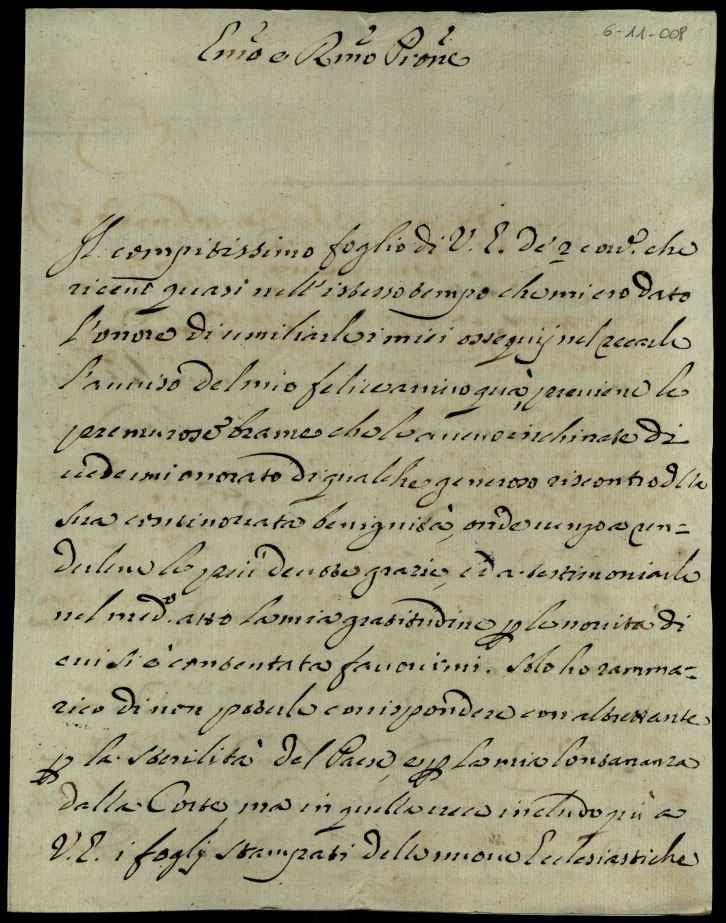 6-11-008
Emo e Rmo Prone
Il compitissimo foglio di V. E. de' 2 corr. che
ricevei quasi nell'istesso tempo che mi ero dato
l'onore di umiliarle i miei ossequij nel recarle
l'avviso del mio felice arrivo quà, previene le
premurose brame che le avevo inchinate di
vedermi onorato di qualche generoso riscontro dlla
sua continovata benignità, onde vengo a ren=
derlene le più devote grazie, ed a testimoniarle
nel medo. atto la mia gratitudine p le novità di
cui si è contentata favorirmi. Solo ho ramma=
rico di non poterle corrispondere con altrettante
p la sterilità del Paese, e p la mia lontananza
dalla Corte, ma in quella vece includo quì a
V. E. i foglj stampati delle nuove Ecclesiastiche